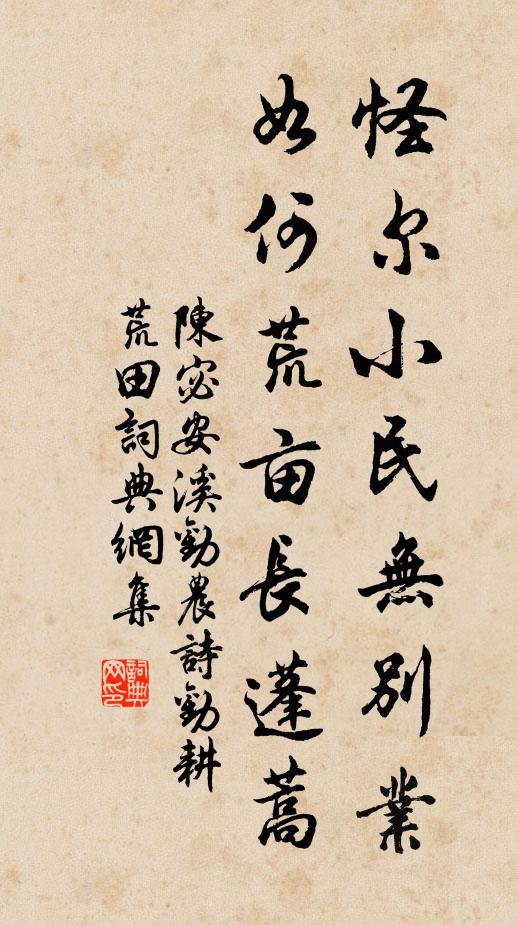 怪尔小民無别業
如何荒亩長蓬蒿
陳宓安溪勸農詩勸耕
荒田詞典網集
詞典网印